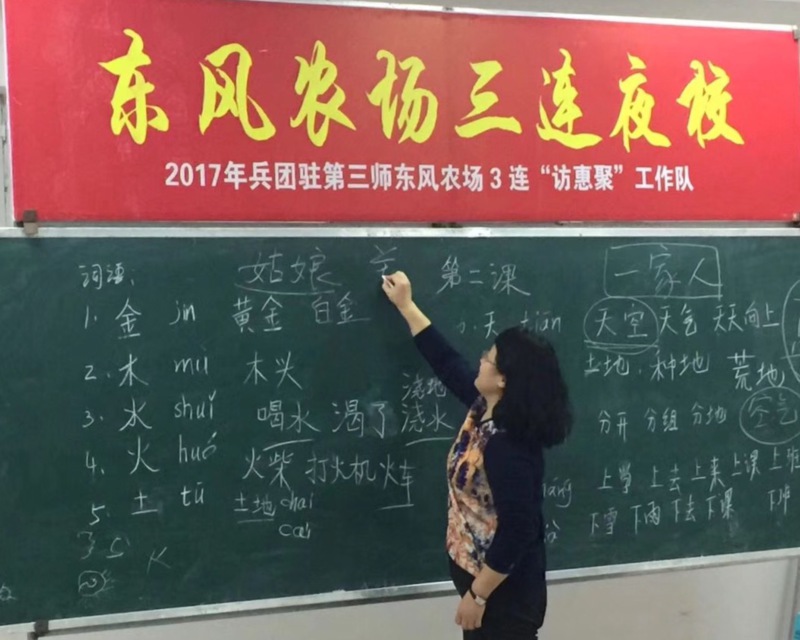 东风农场三连夜校
2017年兵团驻第三师东风农场3连“访惠聚”工作队
词语: 姑娘 第二课 一家人
1. 金 jīn 黄金 白金 天 tiān 天空 天气 天天向上
2. 木 mù 木 土地. 种地 荒地
浇地
3. 水 shuǐ 喝水 渴了 浇水 分开 分组 分地 空气
4. 火 huǒ 火柴 打火机 火车 上学 上去 上来 上课 上班
5. 土 tǔ 土地 chai 下雪 下雨 下去 下课 下班
cai
K